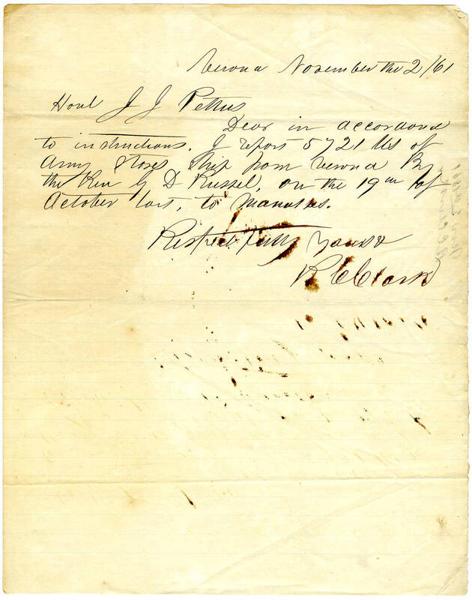 Verona November the 2/61
Honl J J Pettus
Dear in accordance
to instructions. I report 5721 lbs of
Army Stores Ship from Verona By
the Rev G D Russel, on the 19th of
October last, to Manassas.
Respectfully Yours &
R C Clark